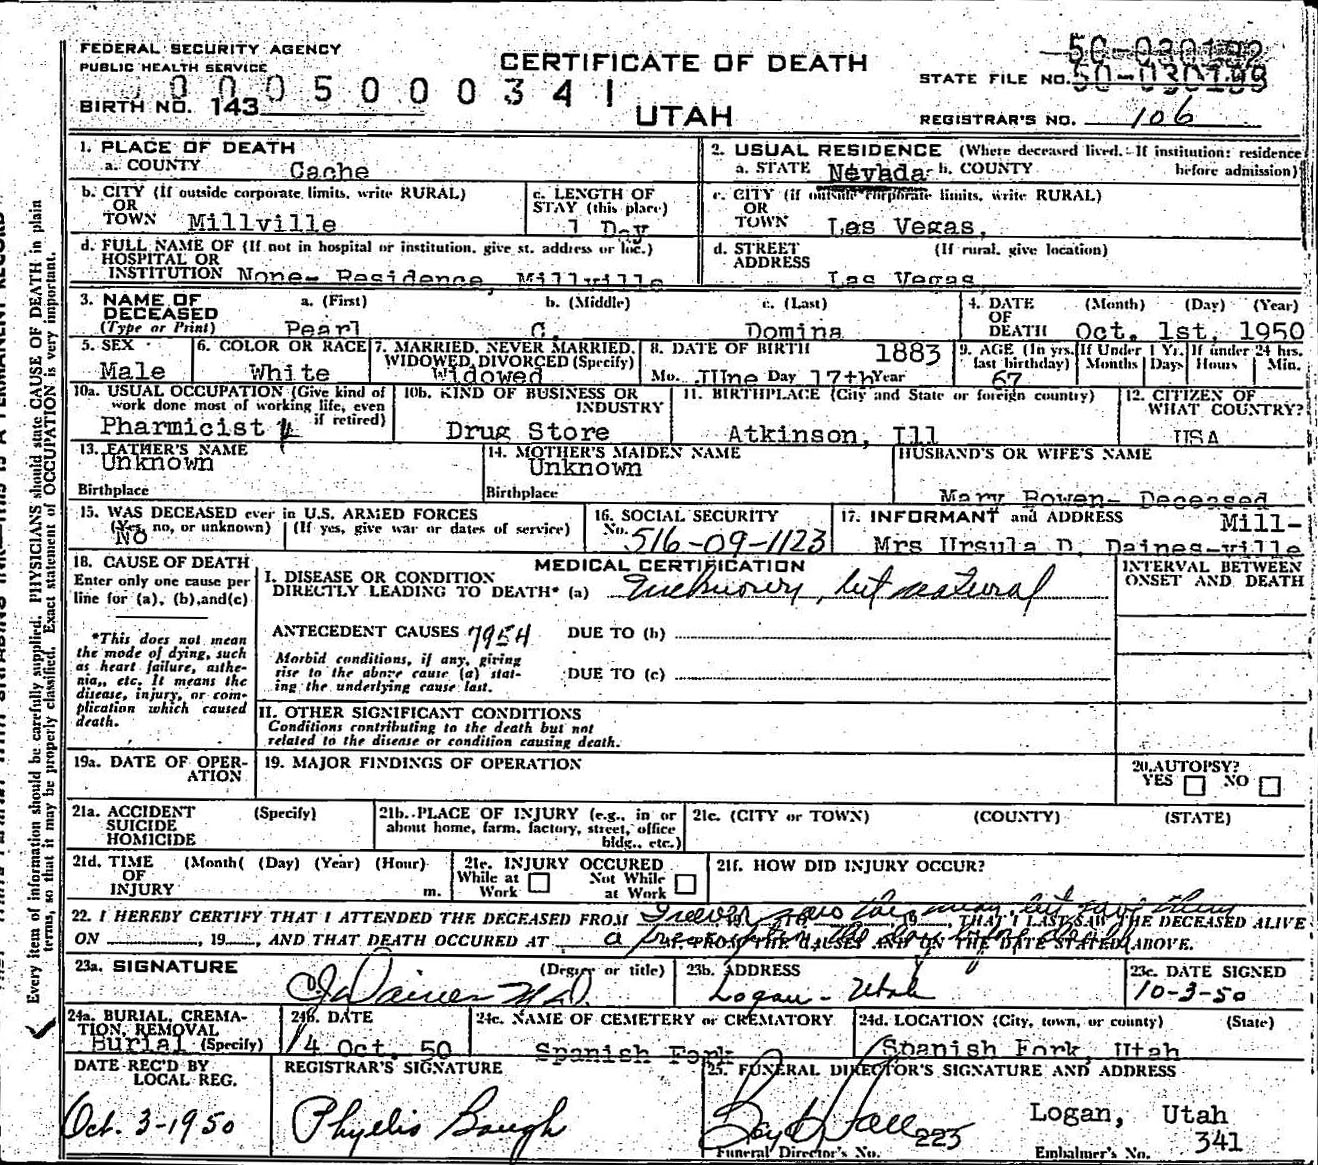 FEDERAL SECURITY AGENCY
PUBLIC HEALTH SERVICE
0005000341
BIRTH NO. 143
CERTIFICATE OF DEATH
UTAH
50-030192
STATE FILE NO. 50-030199
REGISTRAR'S NO. 106
1. PLACE OF DEATH
a. COUNTY Cache
2. USUAL RESIDENCE (Where deceased lived. If institution: residence before admission)
a. STATE Nevada b. COUNTY
b. CITY (If outside corporate limits, write RURAL)
OR
TOWN Millville
c. LENGTH OF
STAY (this place)
1 Day
c. CITY (if outside corporate limits, write RURAL)
OR
TOWN Las Vegas,
d. FULL NAME OF (If not in hospital or institution, give st. address or loc.)
HOSPITAL OR
INSTITUTION None- Residence, Millville
d. STREET (If rural, give location)
ADDRESS Las Vegas,
3. NAME OF
DECEASED
(Type or Print)
a. (First) Pearl
b. (Middle) C.
c. (Last) Domina
4. DATE (Month) (Day) (Year)
OF
DEATH Oct. 1st, 1950
5. SEX
Male
6. COLOR OR RACE
White
7. MARRIED, NEVER MARRIED,
WIDOWED, DIVORCED (Specify)
Widowed
8. DATE OF BIRTH 1883
Mo. JUne Day 17th Year
9. AGE (In yrs. last birthday)
67
If Under 1 Yr.
Months Days
If under 24 hrs.
Hours Min.
10a. USUAL OCCUPATION (Give kind of
work done most of working life, even
if retired)
Pharmicist
10b. KIND OF BUSINESS OR
INDUSTRY
Drug Store
11. BIRTHPLACE (City and State or foreign country)
Atkinson, Ill
12. CITIZEN OF
WHAT COUNTRY?
USA
13. FATHER'S NAME
Unknown
Birthplace
14. MOTHER'S MAIDEN NAME
Unknown
Birthplace
HUSBAND'S OR WIFE'S NAME
Mary Bowen- Deceased
15. WAS DECEASED ever in U.S. ARMED FORCES
(Yes, no, or unknown) (If yes, give war or dates of service)
No
16. SOCIAL SECURITY
No. 516-09-1123
17. INFORMANT and ADDRESS Mill-
Mrs Ursula D. Daines-ville
18. CAUSE OF DEATH
Enter only one cause per
line for (a), (b),and(c)
*This does not mean
the mode of dying, such
as heart failure, asthe-
nia,, etc. It means the
disease, injury, or com-
plication which caused
death.
MEDICAL CERTIFICATION
I. DISEASE OR CONDITION
DIRECTLY LEADING TO DEATH* (a) Unknown, but natural
ANTECEDENT CAUSES 7954 DUE TO (b)
Morbid conditions, if any, giving
rise to the above cause (a) stat-
ing the underlying cause last.
DUE TO (c)
II. OTHER SIGNIFICANT CONDITIONS
Conditions contributing to the death but not
related to the disease or condition causing death.
INTERVAL BETWEEN
ONSET AND DEATH
19a. DATE OF OPER-
ATION
19. MAJOR FINDINGS OF OPERATION
20. AUTOPSY?
YES NO
21a. ACCIDENT (Specify)
SUICIDE
HOMICIDE
21b. PLACE OF INJURY (e.g., in or
about home, farm, factory, street, office
bldg., etc.)
21c. (CITY or TOWN) (COUNTY) (STATE)
21d. TIME (Month( (Day) (Year) (Hour)
OF
INJURY m.
21e. INJURY OCCURED
While at Work
Not While at Work
21f. HOW DID INJURY OCCUR?
22. I HEREBY CERTIFY THAT I ATTENDED THE DECEASED FROM I never saw the man but gave them, THAT I LAST SAW THE DECEASED ALIVE
ON , 19 , AND THAT DEATH OCCURED AT a prescription the day before death FROM THE CAUSES AND ON THE DATE STATED ABOVE.
23a. SIGNATURE (Degree or title)
Daines M.D.
23b. ADDRESS
Logan - Utah
23c. DATE SIGNED
10-3-50
24a. BURIAL, CREMA-
TION, REMOVAL
(Specify) Burial
24b. DATE
4 Oct. 50
24c. NAME OF CEMETERY or CREMATORY
Spanish Fork
24d. LOCATION (City, town, or county) (State)
Spanish Fork, Utah
DATE REC'D BY
LOCAL REG.
Oct. 3-1950
REGISTRAR'S SIGNATURE
Phyllis Baugh
25. FUNERAL DIRECTOR'S SIGNATURE AND ADDRESS
Boyd Hall Logan, Utah
Funeral Director's No. 225
Embalmer's No. 341
Every item of information should be carefully supplied. PHYSICIANS should state CAUSE OF DEATH in plain
terms, so that it may be properly classified. Exact statement of OCCUPATION is very important.